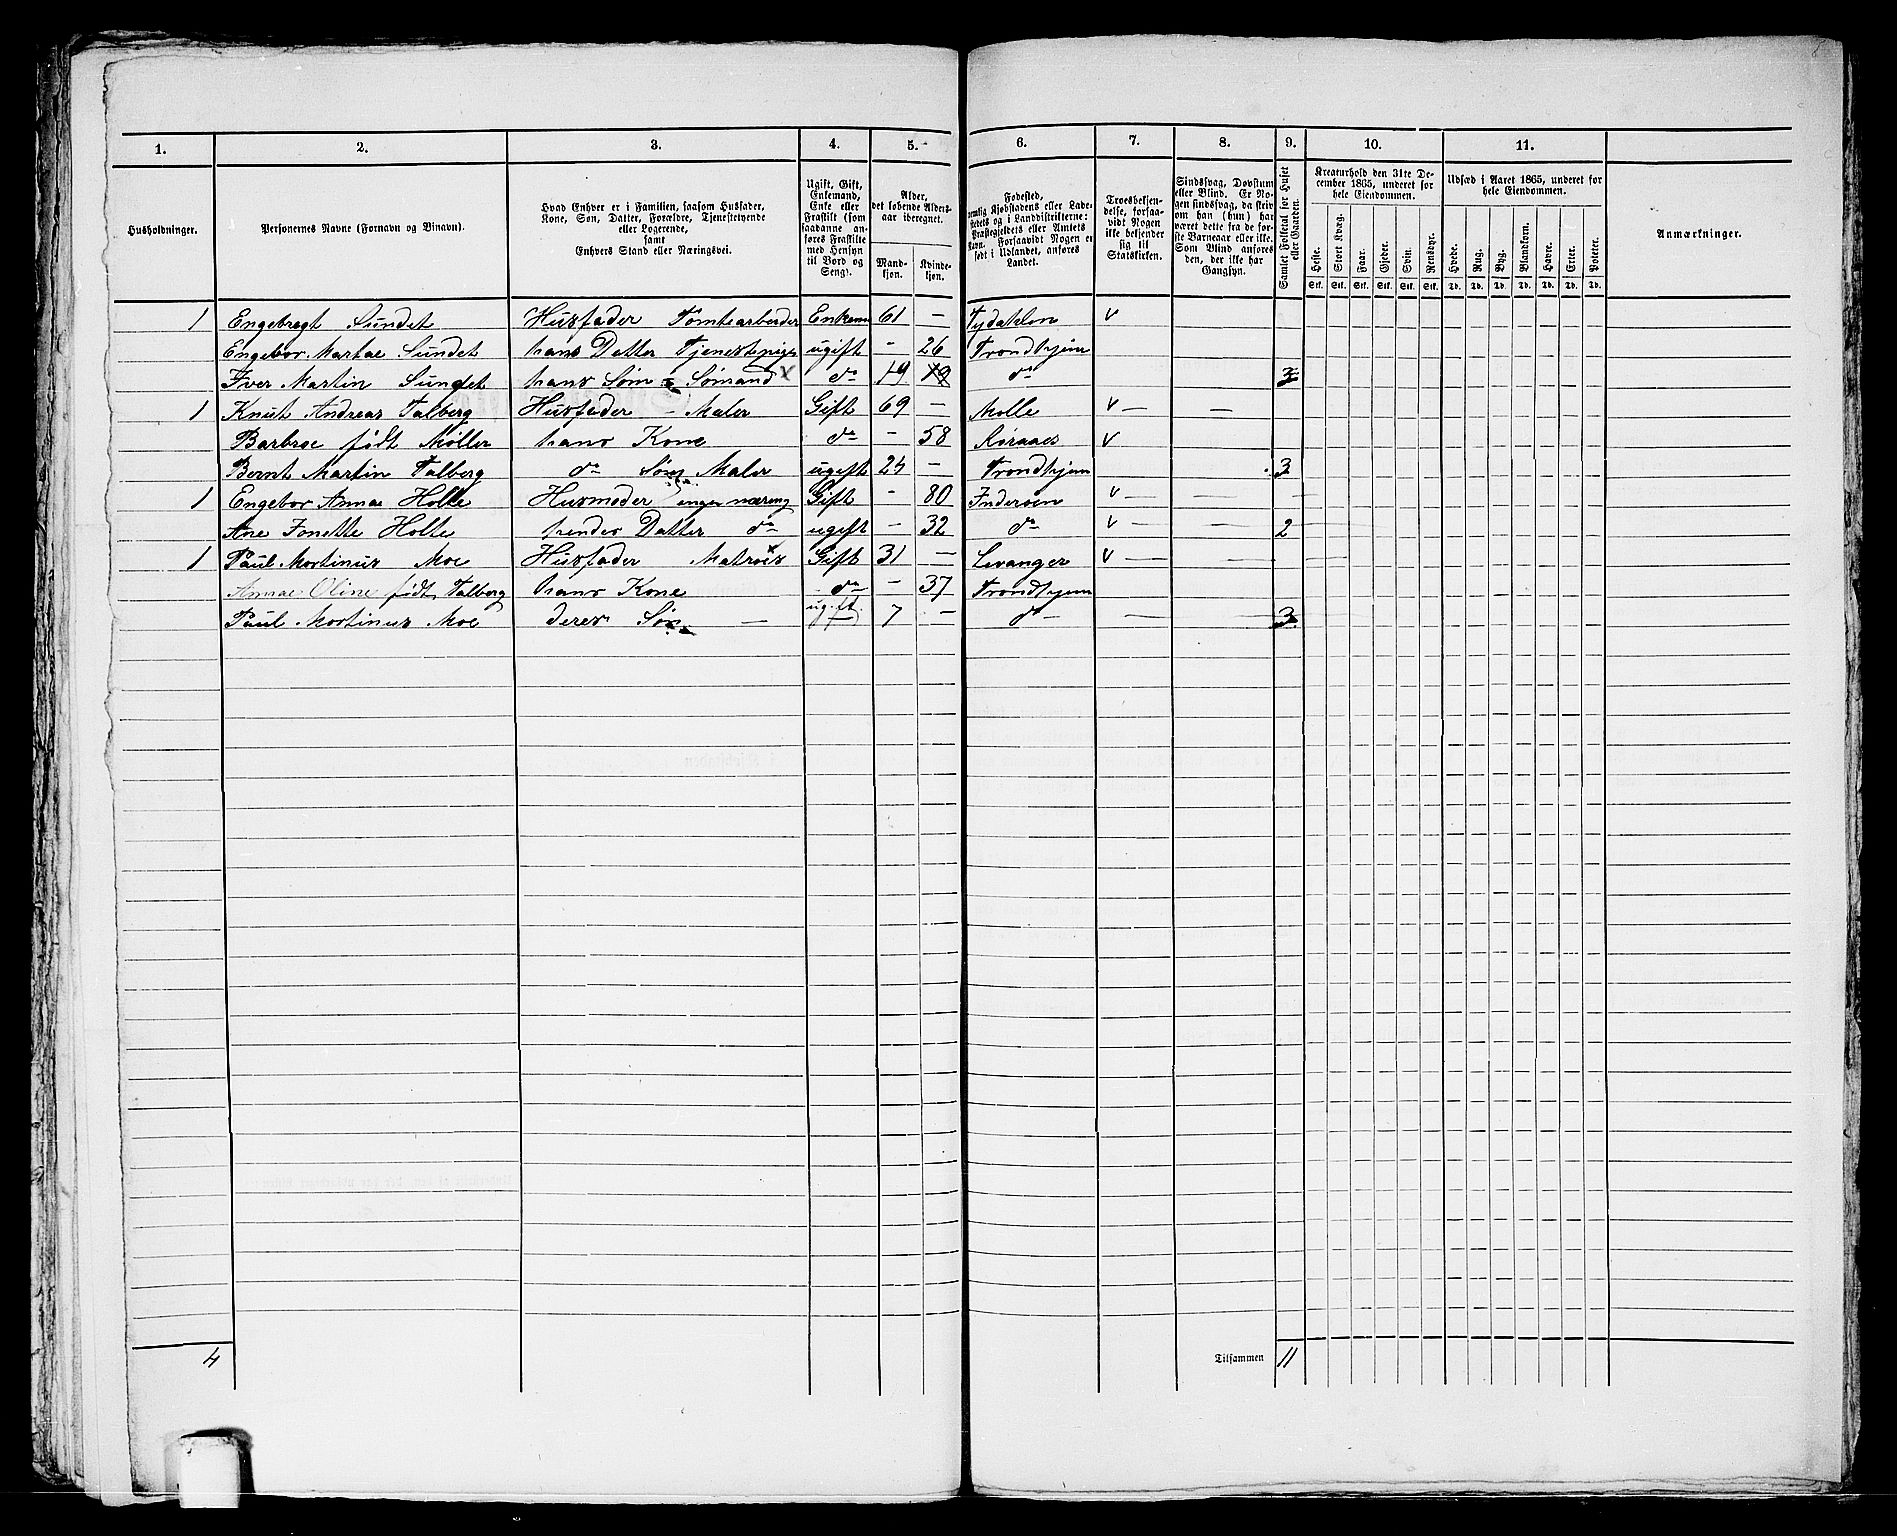 1. 2. 3. 4. 5. 6. 7. 8. 9. 10. 11.
Husholdninger.
Personernes Navne (Fornavn og Binavn).
Hvad Enhver er i Familien, saasom Husfader,
Kone, Søn, Datter, Forældre, Tjenestetyende
eller Logerende,
samt
Enhvers Stand eller Næringsvei.
Ugift, Gift,
Enkemand,
Enke eller
Fraskilt (som
saadanne an-
føres Fraskilte
med Hensyn
til Bord og
Seng).
Alder,
det løbende Alders-
aar iberegnet.
Mand-
kjøn.
Kvinde-
kjøn.
Fødested,
nemlig Kjøbstadens eller Lade-
stedets og i Landdistrikterne:
Præstegjeldets eller Amtets
Navn. Forsaavidt Nogen er
født i Udlandet, anføres
Landet.
Troesbekjen-
delse, forsaa-
vidt Nogen
ikke bekjender
sig til
Statskirken.
Sindssvag, Døvstum
eller Blind. Er No-
gen sindssvag, da skriv
om han (hun) har
været dette fra de før-
ste Barneaar eller ikke.
Som Blind anføres
den, der ikke har
Gangsyn.
Samlet Folketal for Huset
eller Gaarden.
Kreaturhold den 31te De-
cember 1865, underet for
hele Eiendommen.
Heste. Stort Kvæg. Faar. Gjeder. Svin. Rensdyr.
Stk. Stk. Stk. Stk. Stk. Stk.
Udsæd i Aaret 1865, underet for
hele Eiendommen.
Hvede. Rug. Byg. Blandkorn. Havre. Erter. Poteter.
Td. Td. Td. Td. Td. Td. Td.
Anmærkninger.
1 Engebregt Sundet Husfader Tomtearbeider Enkem 61 — V
Engebor Martae Sundet hans Datter Tjenestepige ugift - 26 Trondhjem
Iver Martin Sundet hans Søn = Sømand do 19 19 do 3
1 Knut Andreas Talberg Husfader - Maler Gift 69 — Molle V — —
Barbroe født Møller hans Kone do - 58 Røraaes V
Bernt Martin Talberg do Søn Maler ugift 24 — Trondhjem 3
1 Engebor Annae Holte Husmoder ingen næring Gift - 80 Inderøen V — — —
Ane Jonette Holte hendes Datter do ugift - 32 do V — — 2
1 Paul Mortinus Moe Husfader Matros Gift 31 — Levanger V — — —
Annae Oline født Talberg hans Kone do - 37 Trondhjem
Paul Mortinus Moe deres Søn — ugift 7 — do — — 3
4 Tilsammen 11